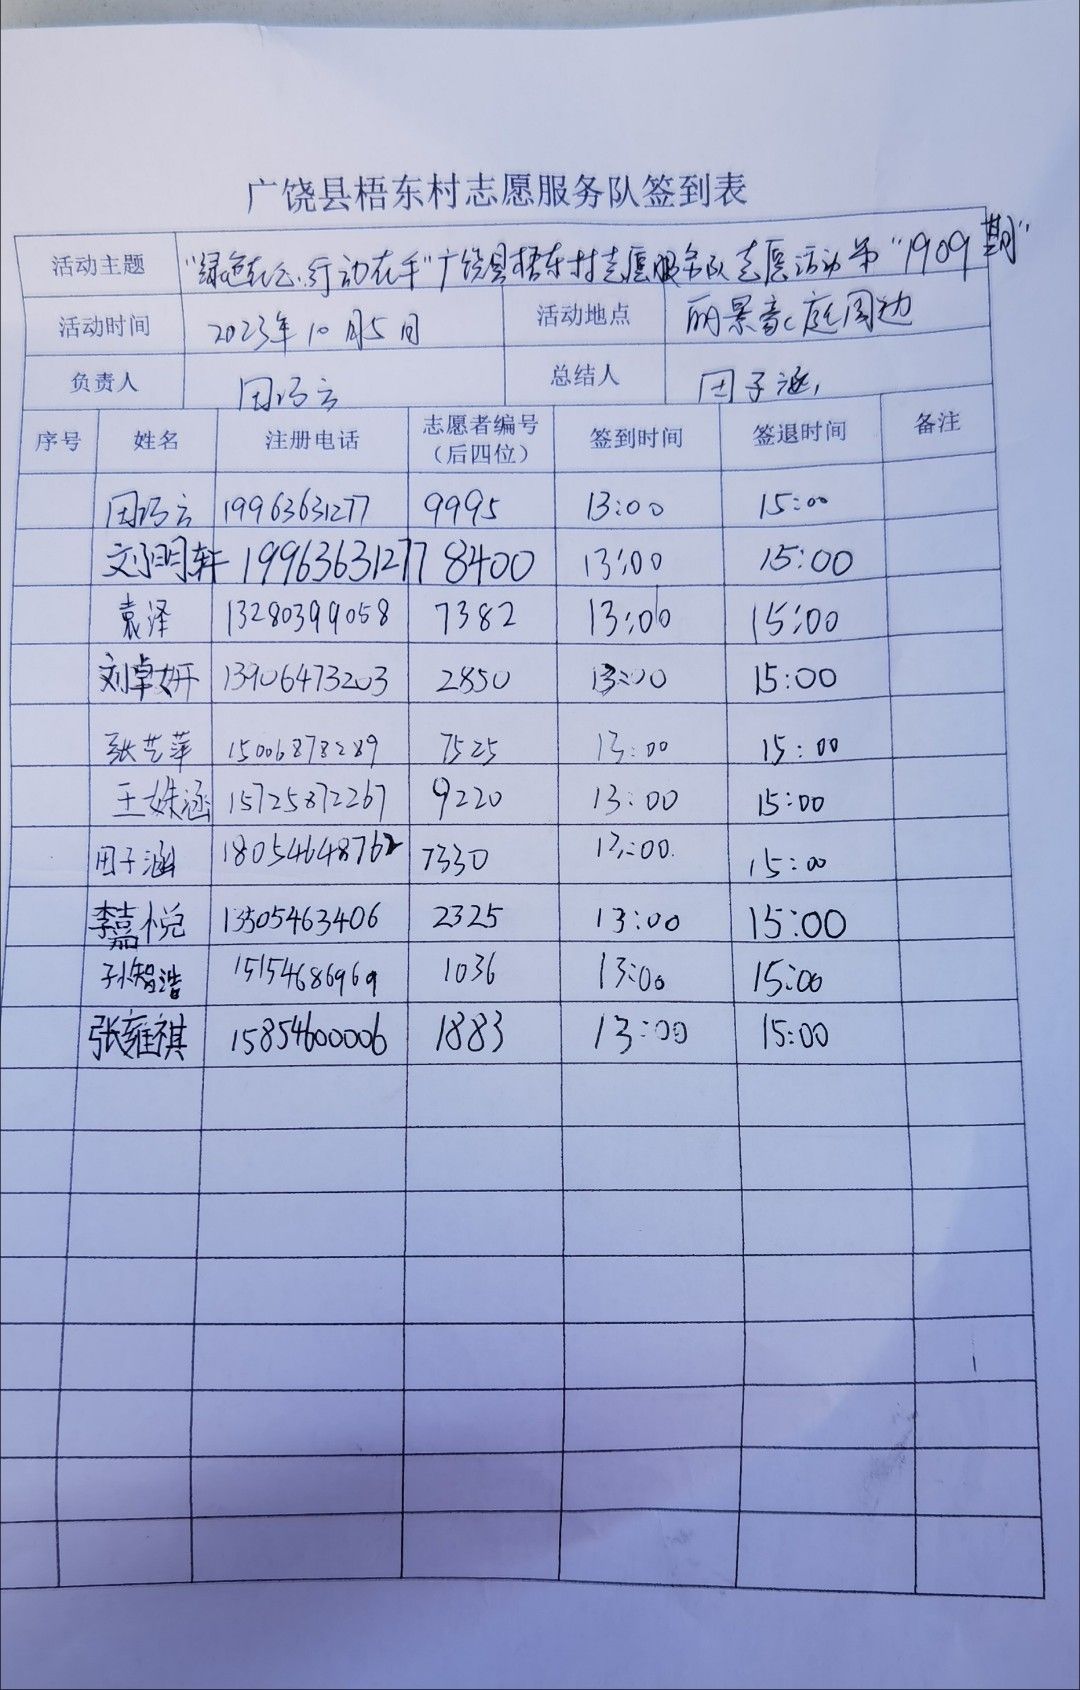 广饶县梧东村志愿服务队签到表
活动主题 "绿色在心.行动在手"广饶县梧东村志愿服务队志愿活动第"1909期"
活动时间 2023年10月5日 活动地点 丽景豪庭周边
负责人 田巧云 总结人 田子涵
序号 姓名 注册电话 志愿者编号（后四位） 签到时间 签退时间 备注
田巧云 19963631277 9995 13:00 15:00
刘明轩 19963631277 8400 13:00 15:00
袁泽 13280399058 7382 13:00 15:00
刘卓妍 13906473203 2850 13:00 15:00
张艺萍 15006878289 7525 13:00 15:00
王姝涵 15725872267 9220 13:00 15:00
田子涵 18054648762 7330 13:00 15:00
李嘉悦 13505463406 2325 13:00 15:00
孙智浩 15154686969 1036 13:00 15:00
张雍祺 15854600006 1883 13:00 15:00